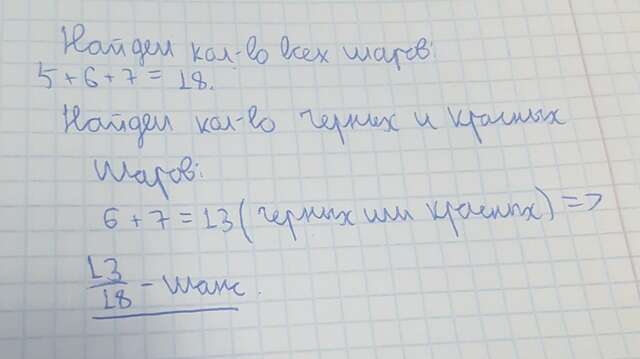 Найдем кол-во всех шаров:
5+6+7=18.
Найдем кол-во черных и красных
шаров:
6+7=13(черных или красных) =>
13/18 - шанс.